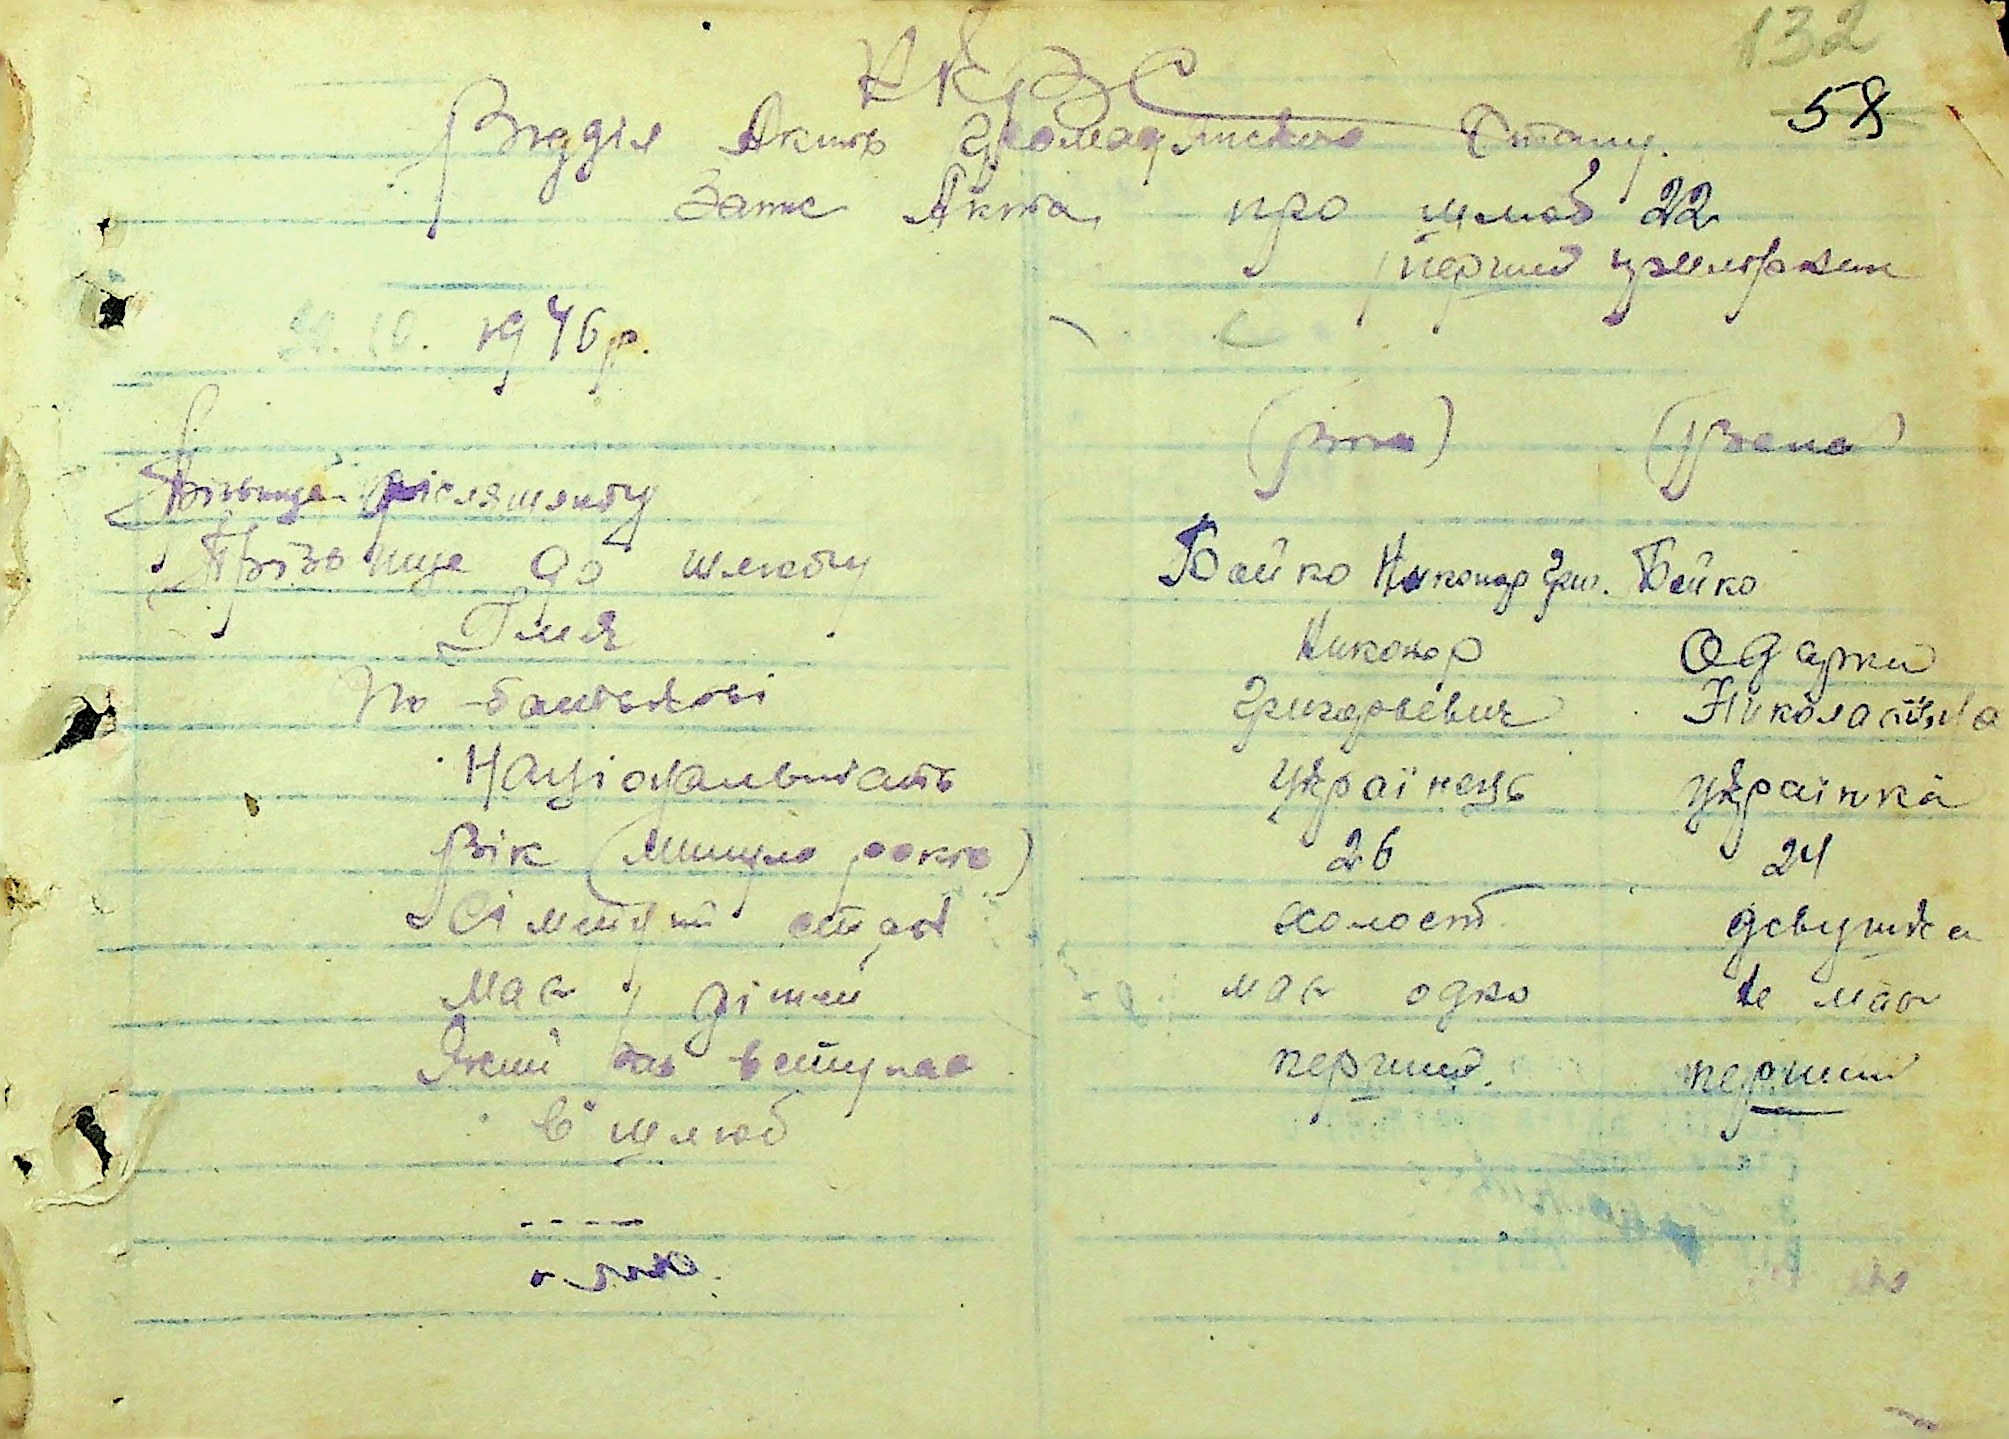 132
58
Відділ Актів Громадянського Стану.
Запис Акта про шлюб 22
перший
1946р.
Прізвище післяшлюбу
Прізвище до шлюбу Бойко Никонор Гри. Бойко
Імя Никонор Одарка
По-батькові Григорьевич Николаївна
Національність Українець Українка
Вік (минуло років) 26 24
Сімейний стан холост девушка
Має дітей має одно не має
Який раз вступає перший. перший
в шлюб